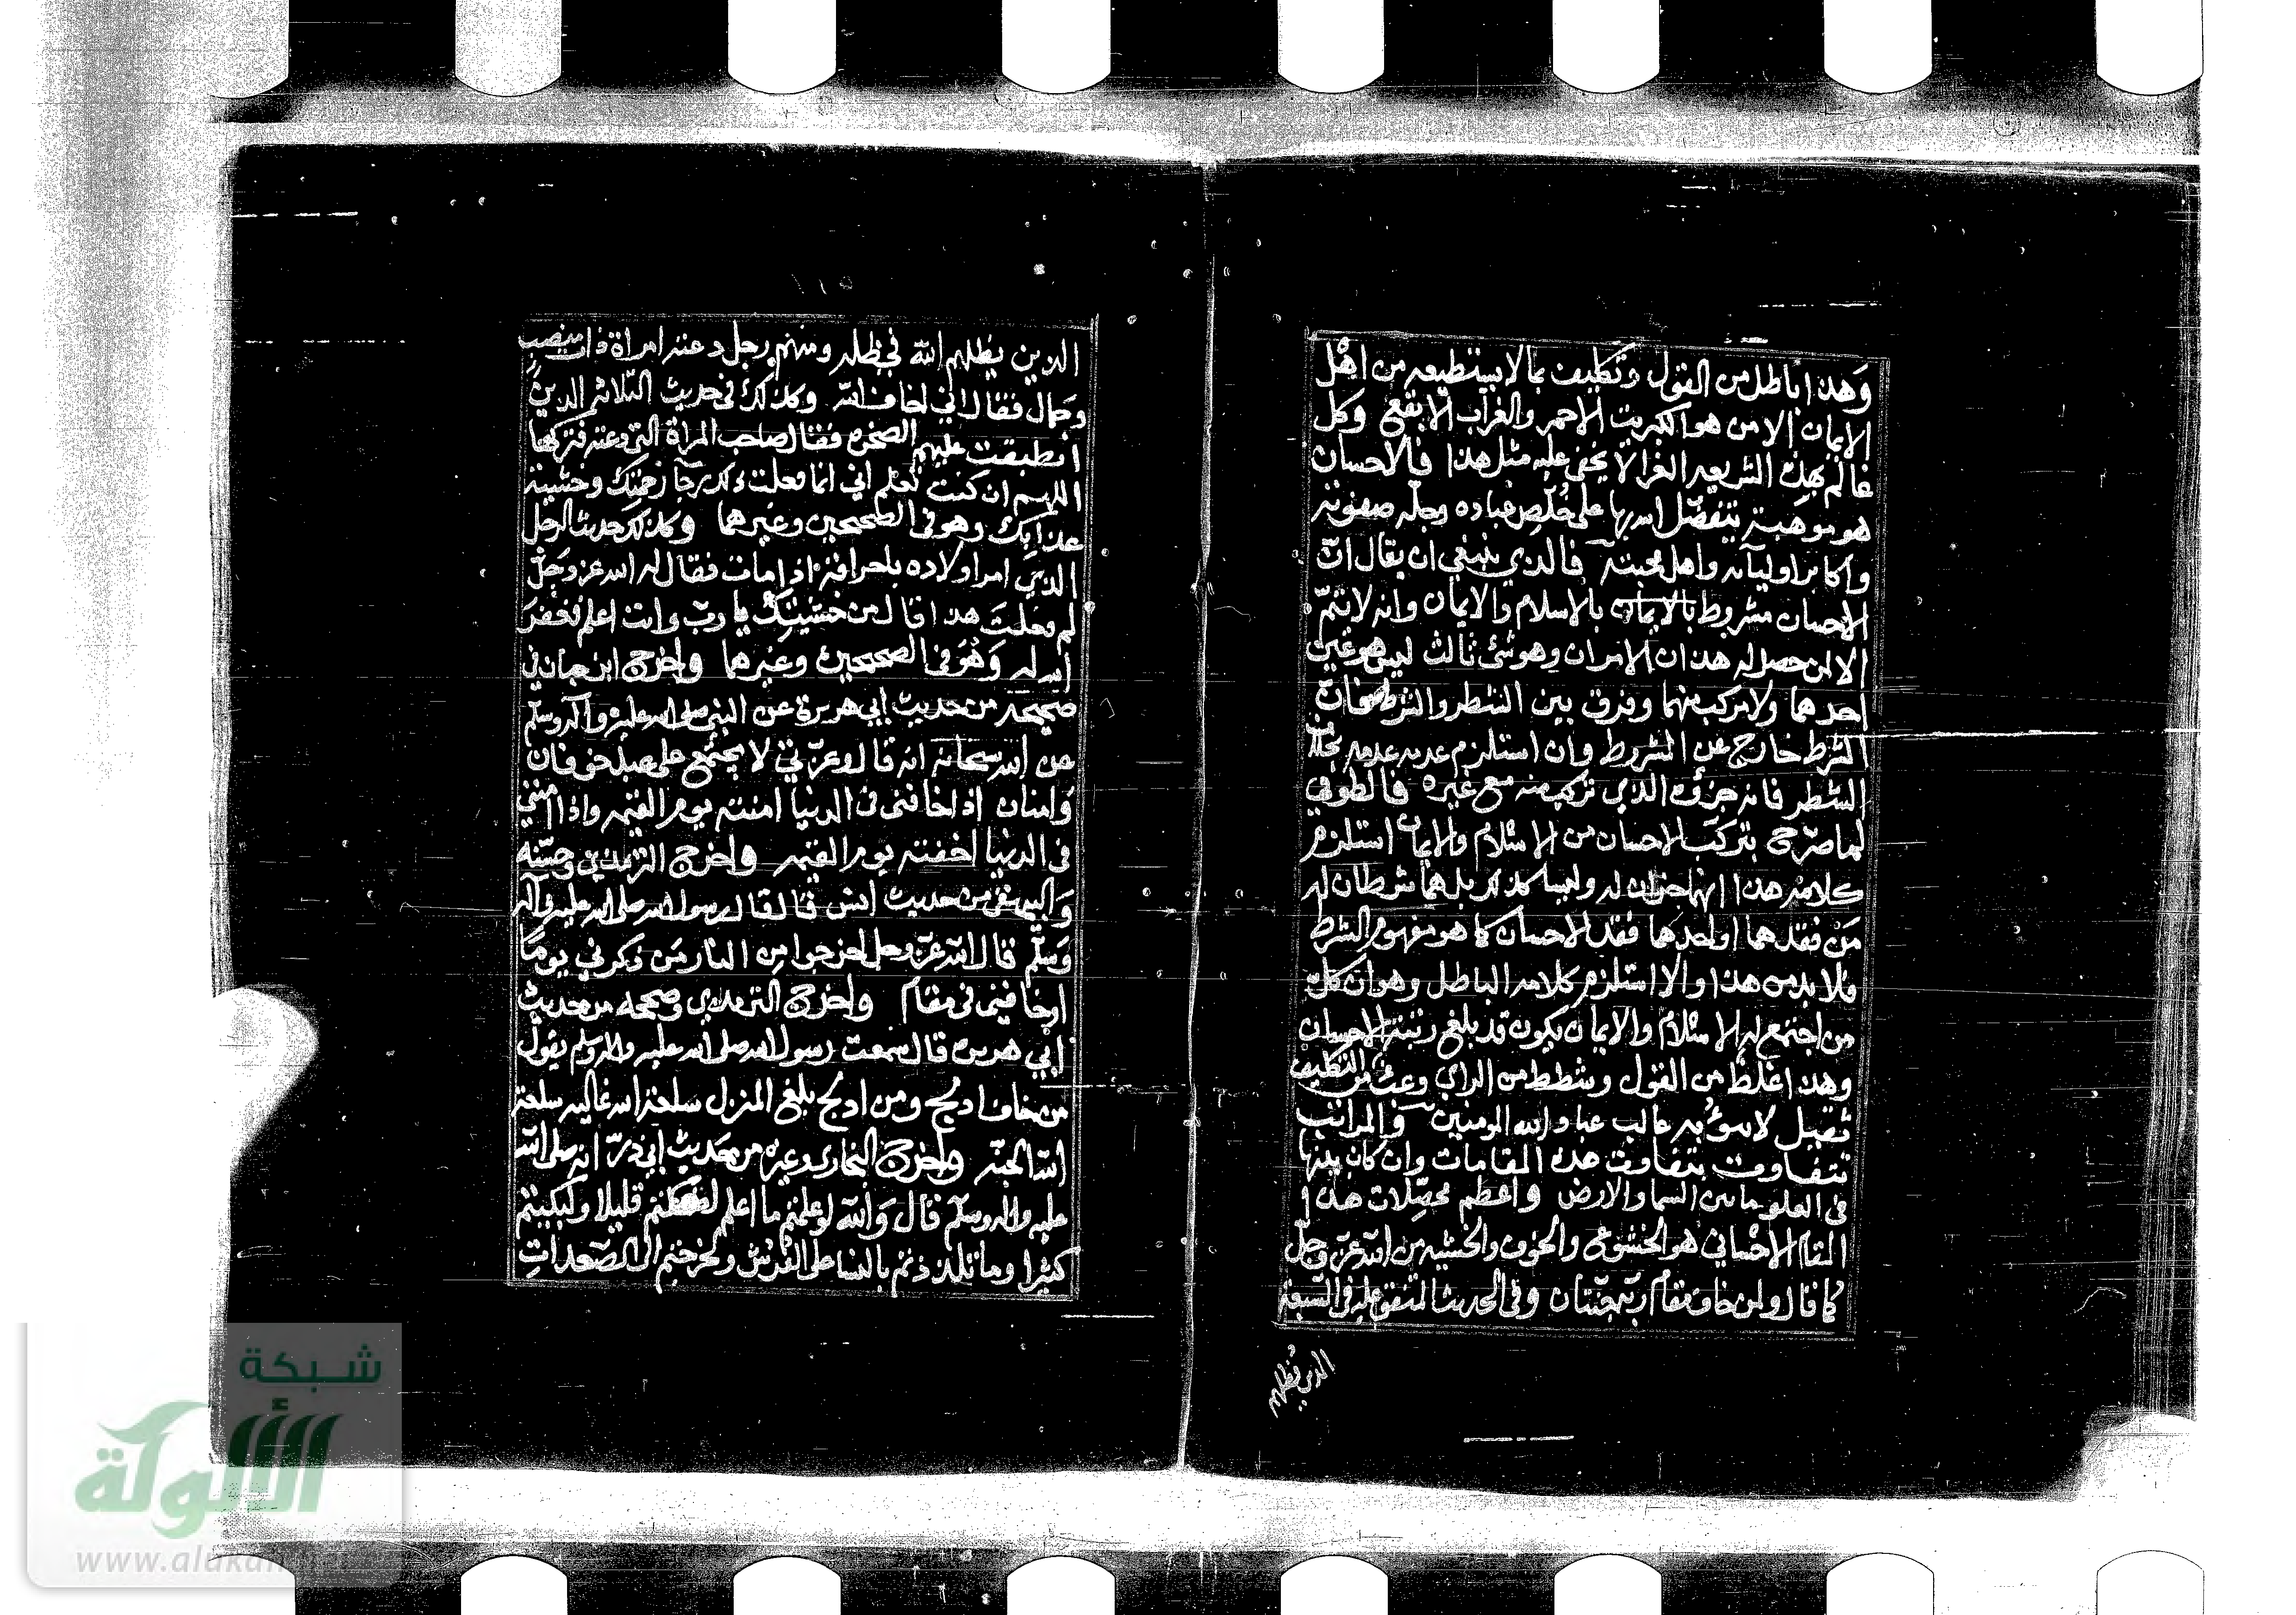 وهذا باطل من القول وتكليف بما لا يستطيعه من اهل
الايمان الا من هو الكبريت الاحمر والغراب الابقع وكل
عالم بهذه الشريعه الغرا لا يخفى عليه مثل هذا فالاحسان
هو موهبة يتفضل الله بها على خلص عباده وجلة صفوته
واكابر اوليآئه واهل محبته فالذي ينبغي ان يقال ان
الاحسان مشروط بالايمان بالاسلام والايمان وانه لا يتم
الا لمن حصل له هذان الامران وهو شئ ثالث ليس هو عين
احدهما ولا مركب منهما وفرق بين الشطر والشرط فان
الشرط خارج عن المشروط وان استلزم عدمه عدمه بخلاف
الشطر فانه جزؤه الذي تركب منه مع غيره فالطوفي
لما صرح بتركب الاحسان من الاسلام والايمان استلزم
كلامه هذا انهما جزآن له وليسا كذلك بل هما شرطان له
من فقدهما او احدهما فقد الاحسان كما هو مفهوم الشرط
فلا بد من هذا والا استلزم كلامه الباطل وهو ان كل
من اجتمع له الاسلام والايمان يكون قد بلغ رتبة الاحسان
وهذا غلط من القول وشطط من الراي وعبث من التكليف
ثقيل لا ينوء به غالب عباد الله المومنين والمراتب
تتفاوت بتفاوت هذه المقامات وان كان بينها
في العلو ما بين السما والارض واعظم محصلات هذا
المقام الاحساني هو الخشوع والخوف والخشيه من الله عز وجل
كما قال ولمن خاف مقام ربه جنتان وفي الحديث المتفق عليه في السبعة
الذين يظلهم
١١٥
الذين يظلهم الله في ظله ومنهم رجل دعته امراة ذات منصب
وجمال فقال اني اخاف الله وكذلك في حديث الثلاثة الذين
انطبقت عليهم الصخره فقال صاحب المراة التي دعته فتركها
اللهم ان كنت تعلم اني انما فعلت ذلك رجآ رحمتك وخشية
عذابك وهو في الصحيحين وغيرهما وكذلك حديث الرجل
الذي امر اولاده باحراقه اذا مات فقال له الله عز وجل
لم فعلت هذا قال من خشيتك يا رب وانت اعلم فغفر
الله له وهو في الصحيحين وغيرهما واخرج ابن حبان في
صحيحه من حديث ابي هريرة عن النبي صلى الله عليه وآله وسلم
عن الله سبحانه انه قال وعزتي لا يجتمع على عبد خوفان
وامنان اذا خافني في الدنيا امنته يوم القيمه واذا امنني
في الدنيا اخفته يوم القيمه واخرج الترمذي وحسنه
والبيهقي من حديث انس قال قال رسول الله صلى الله عليه وآله
وسلم قال الله عز وجل اخرجوا من النار من ذكرني يوما
او خافني في مقام واخرج الترمذي وصححه من حديث
ابي هريره قال سمعت رسول الله صلى الله عليه واله وسلم يقول
من خاف ادلج ومن ادلج بلغ المنزل سلعة الله غاليه سلعة
الله الجنه واخرج البخاري وغيره من حديث ابي ذر انه صلى الله
عليه واله وسلم قال والله لو علمتم ما اعلم لضحكتم قليلا ولبكيتم
كثيرا وما تلذذتم بالنسا على الفرش ولخرجتم الى الصعدات
شبكة
الألوكة